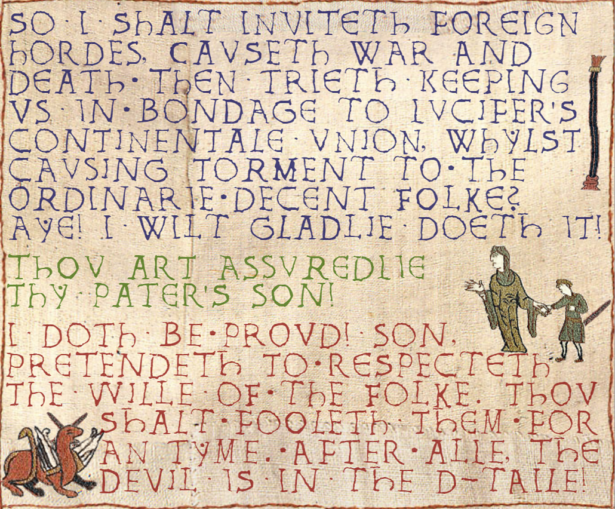 SO I ShALT INVITETh FOREIGN
hORDES, CAVSETh WAR AND
DEATh·ThEN·TRIETh·KEEPING
VS·IN·BONDAGE TO LVCIFER'S
CONTINENTALE·VNION, WhYLST
CAVSING TORMENT TO·ThE
ORDINARIE·DECENT FOLKE?
AYE! I·WILT GLADLIE·DOETh IT!
ThOV ART ASSVREDLIE
ThY·PATER'S SON!
I·DOTh·BE·PROVD! SON,
PRETENDETh TO·RESPECTETh
ThE·WILLE OF·ThE FOLKE. ThOV
ShALT·FOOLETh ThEM·FOR
AN TYME. AFTER·ALLE, ThE
DEVIL·IS·IN·ThE D-TAILE!